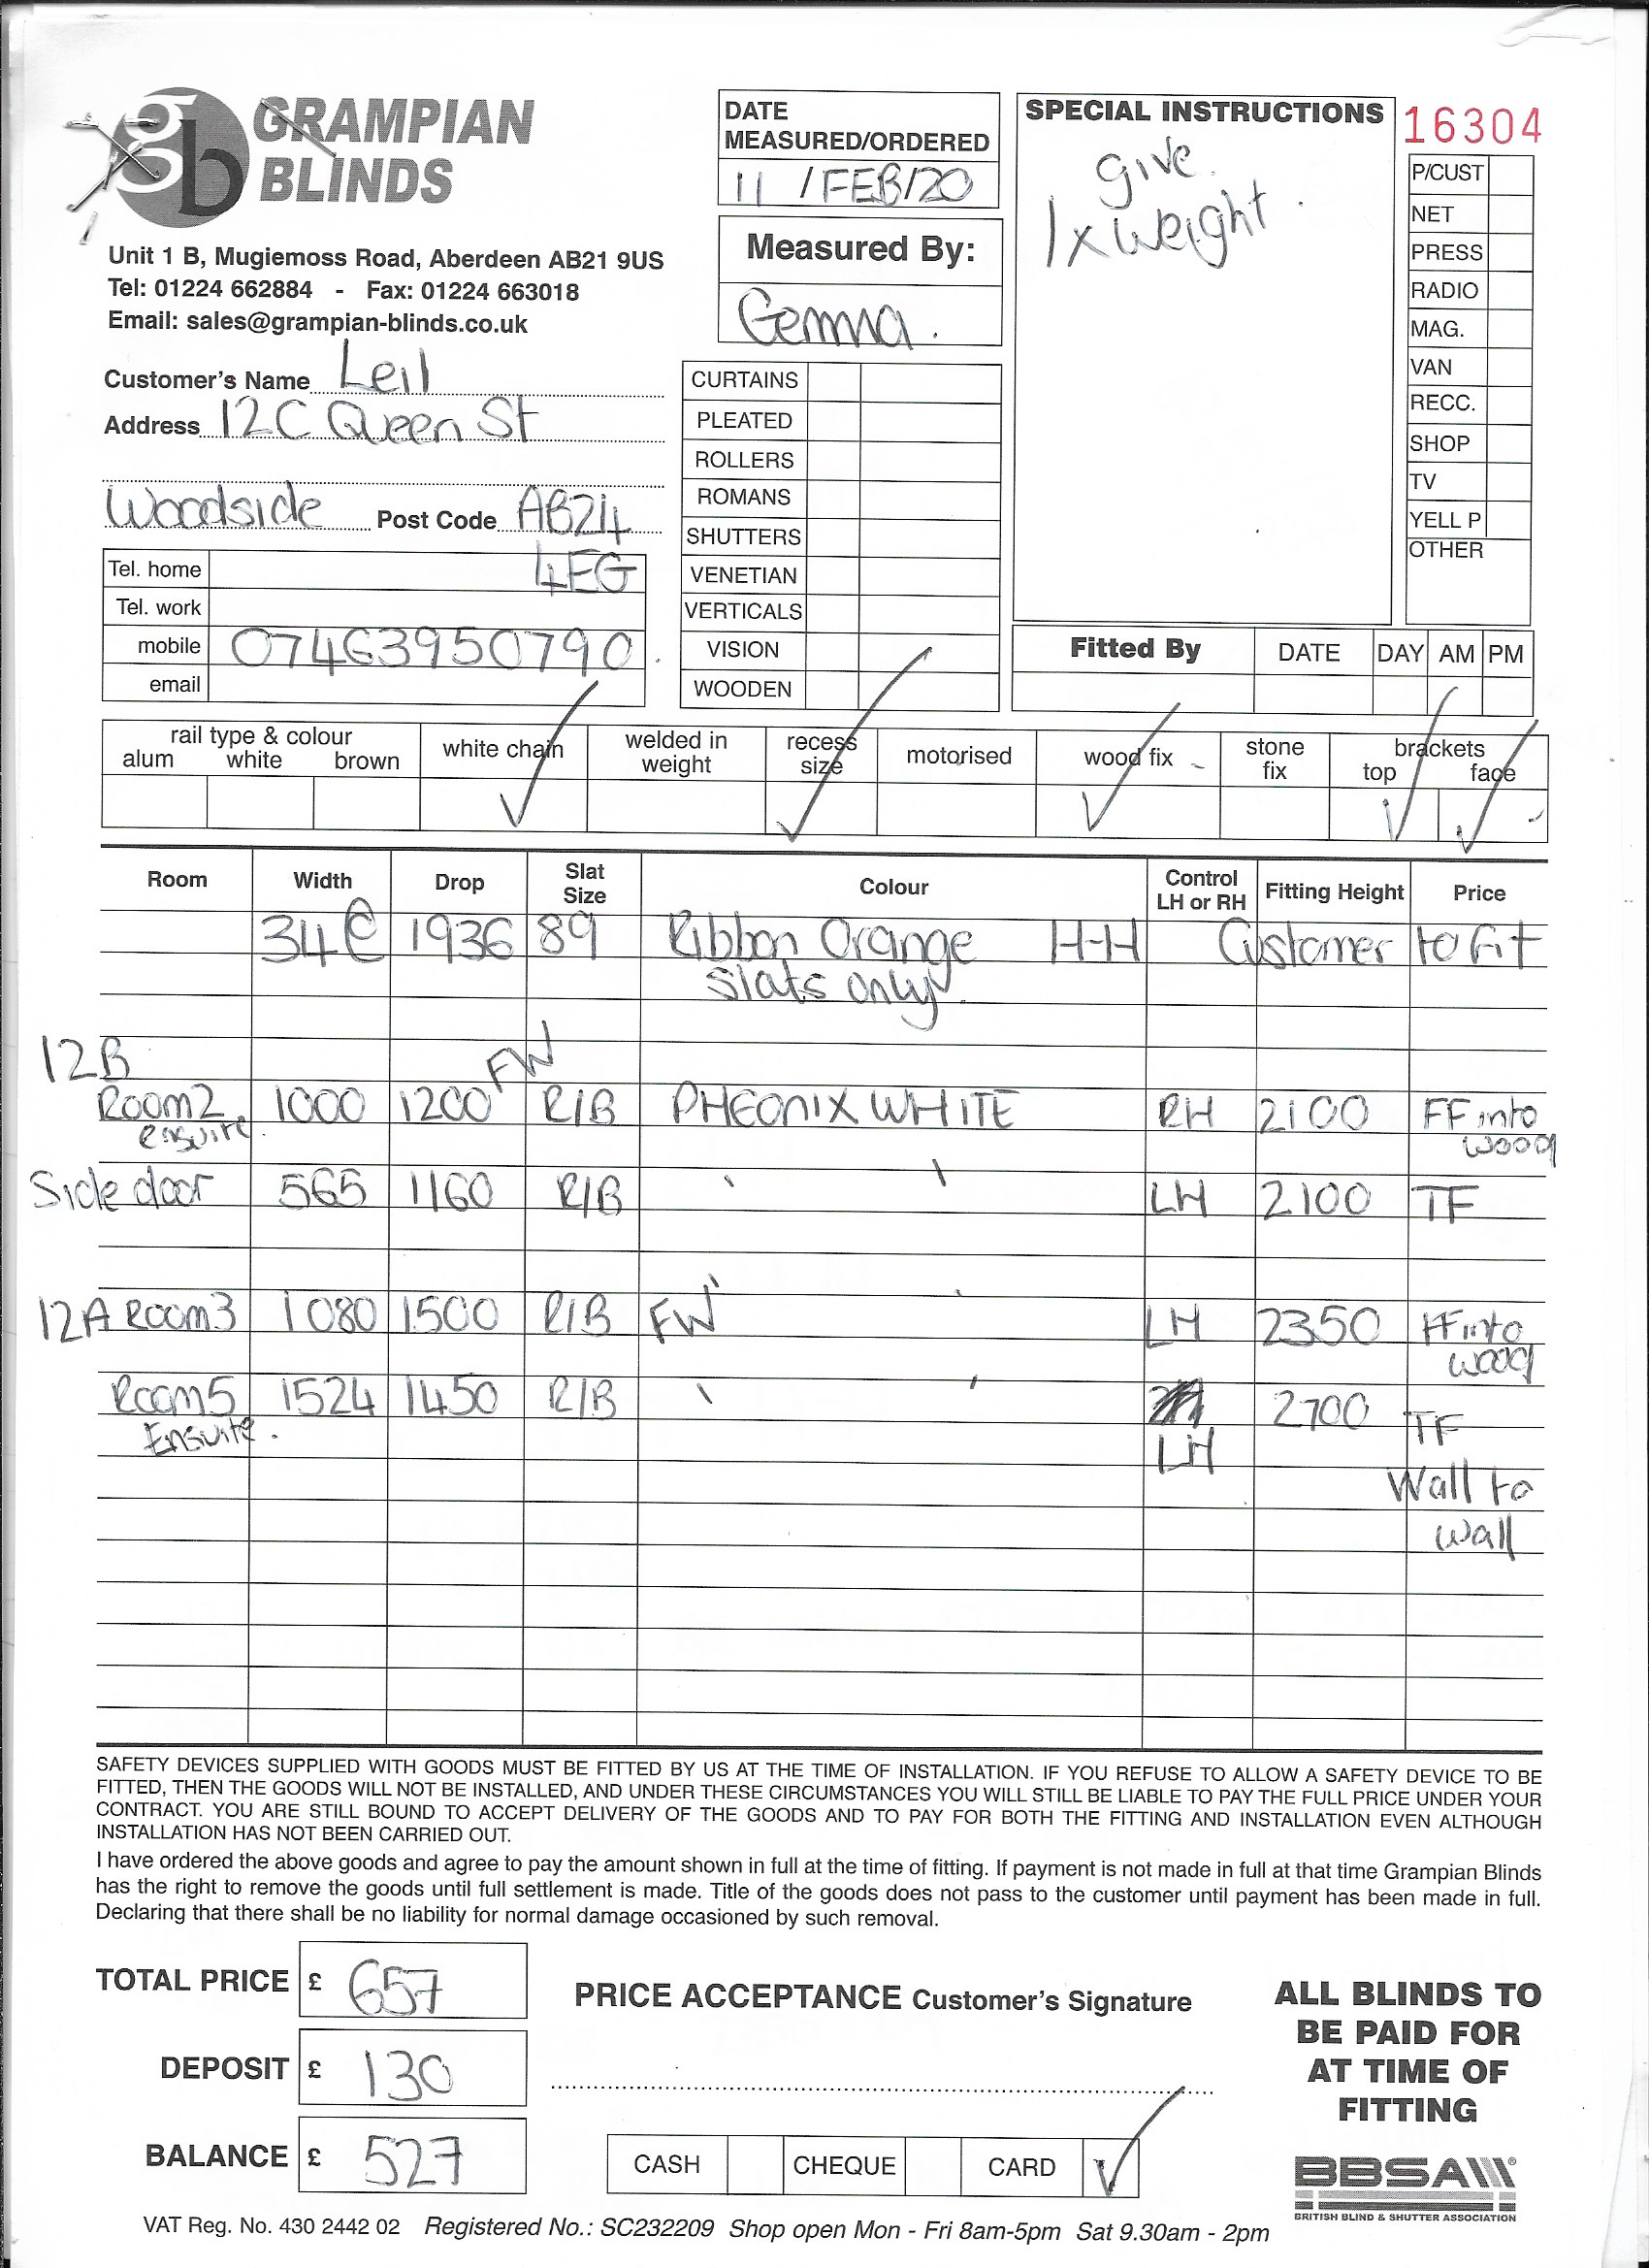 GRAMPIAN
BLINDS
Unit 1 B, Mugiemoss Road, Aberdeen AB21 9US
Tel: 01224 662884 - Fax: 01224 663018
Email: sales@grampian-blinds.co.uk
Customer's Name Leil
Address 12C Queen St
Woodside Post Code AB24
4EG
Tel. home
Tel. work
mobile 07463950790
email
DATE
MEASURED/ORDERED
11 /FEB/20
Measured By:
Gemma.
CURTAINS
PLEATED
ROLLERS
ROMANS
SHUTTERS
VENETIAN
VERTICALS
VISION
WOODEN
SPECIAL INSTRUCTIONS
give
1x weight.
16304
P/CUST
NET
PRESS
RADIO
MAG.
VAN
RECC.
SHOP
TV
YELL P
OTHER
Fitted By DATE DAY AM PM
rail type & colour
alum white brown
white chain ✓
welded in
weight
recess
size ✓
motorised
wood fix ✓
stone
fix
brackets
top ✓ face ✓
Room Width Drop Slat Size Colour Control LH or RH Fitting Height Price
34@ 1936 89 Ribbon Orange H-H Customer to Fit
Slats only.
12B
FW
Room2 1000 1200 R/B PHEONIX WHITE RH 2100 FF into
ensuite. wood
Side door 565 1160 R/B ' ' LH 2100 TF
12A Room3 1080 1500 R/B FW ' ' LH 2350 FF into
wood
Room5 1524 1450 R/B ' ' 2700 TF
Ensuite. LH
Wall to
wall
SAFETY DEVICES SUPPLIED WITH GOODS MUST BE FITTED BY US AT THE TIME OF INSTALLATION. IF YOU REFUSE TO ALLOW A SAFETY DEVICE TO BE
FITTED, THEN THE GOODS WILL NOT BE INSTALLED, AND UNDER THESE CIRCUMSTANCES YOU WILL STILL BE LIABLE TO PAY THE FULL PRICE UNDER YOUR
CONTRACT. YOU ARE STILL BOUND TO ACCEPT DELIVERY OF THE GOODS AND TO PAY FOR BOTH THE FITTING AND INSTALLATION EVEN ALTHOUGH
INSTALLATION HAS NOT BEEN CARRIED OUT.
I have ordered the above goods and agree to pay the amount shown in full at the time of fitting. If payment is not made in full at that time Grampian Blinds
has the right to remove the goods until full settlement is made. Title of the goods does not pass to the customer until payment has been made in full.
Declaring that there shall be no liability for normal damage occasioned by such removal.
TOTAL PRICE £ 657
DEPOSIT £ 130
BALANCE £ 527
PRICE ACCEPTANCE Customer's Signature
CASH CHEQUE CARD ✓
ALL BLINDS TO
BE PAID FOR
AT TIME OF
FITTING
BBSA
BRITISH BLIND & SHUTTER ASSOCIATION
VAT Reg. No. 430 2442 02 Registered No.: SC232209 Shop open Mon - Fri 8am-5pm Sat 9.30am - 2pm